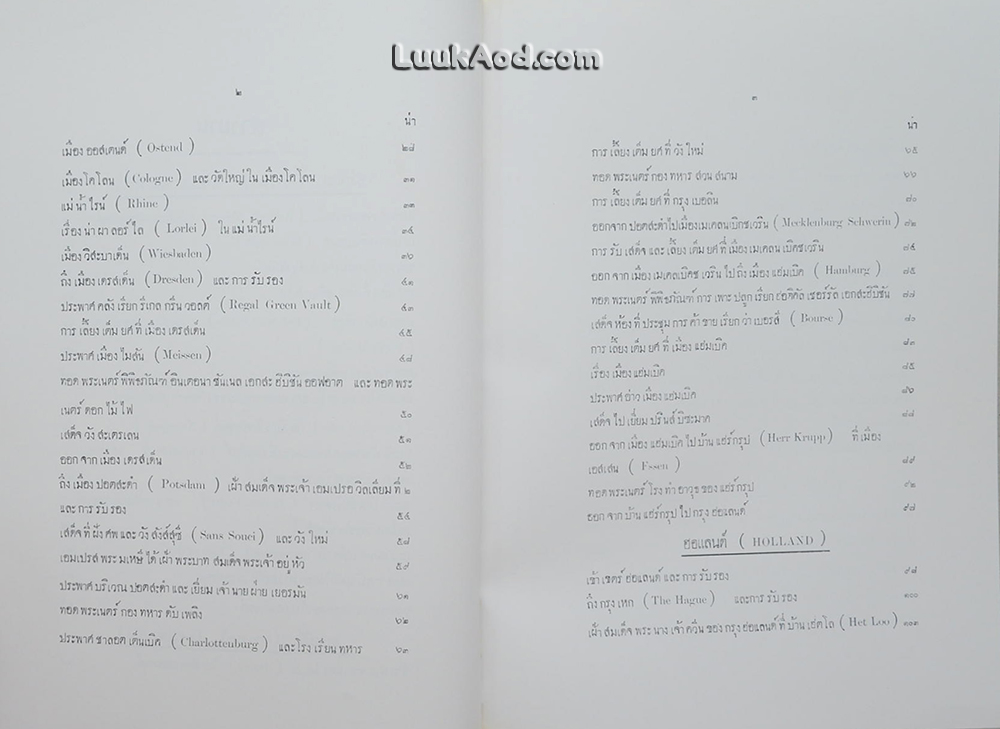 LuukAod.com
๒
น่า
เมือง ออสเตนด์ ( Ostend ) ๒๘
เมืองโคโลน ( Cologne ) และ วัดใหญ่ ใน เมืองโคโลน ๓๑
แม่น้ำ ไรน์ ( Rhine ) ๓๓
เรื่อง น่า ผา ลอร์ไล ( Lorlei ) ใน แม่น้ำไรน์ ๓๔
เมือง วิสะบาเด็น ( Wiesbaden ) ๓๖
ถึง เมือง เดรสเด็น ( Dresden ) และ การ รับ รอง ๔๑
ประพาศ คลัง เรียก ริเกล กรีน วอลต์ ( Regal Green Vault ) ๔๓
การ เลี้ยง เต็ม ยศ ที่ เมือง เดรสเด็น ๔๕
ประพาศ เมือง ไมสัน ( Meissen ) ๔๘
ทอด พระเนตร์ พิพิธภัณฑ์ อินเตอนา ชันเนล เอกสะ ฮีบิชัน ออฟอาต และ ทอด พระ
เนตร์ ดอก ไม้ ไฟ ๕๐
เสด็จ วัง สะเตรเลน ๕๑
ออก จาก เมือง เดรสเด็น ๕๒
ถึง เมือง ปอตสะดำ ( Potsdam ) เฝ้า สมเด็จ พระเจ้า เอมเปรอ วิลเลียม ที่ ๒
และ การ รับ รอง ๕๔
เสด็จ ที่ ฝัง ศพ และ วัง สังส์สุซี ( Sans Souci ) และ วัง ใหม่ ๕๘
เอมเปรส พระ มเหษี ได้ เฝ้า พระบาท สมเด็จ พระเจ้า อยู่ หัว ๕๙
ประพาศ บริเวณ ปอตสะดำ และ เยี่ยม เจ้า นาย ฝ่าย เยอรมัน ๖๑
ทอด พระเนตร์ กอง ทหาร ดับ เพลิง ๖๒
ประพาศ ชาลอต เต็นเบิค ( Charlottenburg ) และ โรง เรียน ทหาร ๖๓
๓
น่า
การ เลี้ยง เต็ม ยศ ที่ วัง ใหม่ ๖๕
ทอด พระเนตร์ กอง ทหาร สวน สนาม ๖๖
การ เลี้ยง เต็ม ยศ ที่ กรุง เบอลิน ๗๐
ออกจาก ปอตสะดำไปเมืองเมเคลนเบิกชเวริน ( Mecklenburg Schwerin ) ๗๒
การ รับ เสด็จ และ เลี้ยง เต็ม ยศ ที่ เมือง เมเคลน เบิคชเวริน ๗๕
ออก จาก เมือง เมเคลเบิคช เวริน ไป ถึง เมือง แฮมเบิค ( Hamburg ) ๗๕
ทอด พระเนตร์ พิพิธภัณฑ์ การ เพาะ ปลูก เรียก ฮอติคัล เชอร์รัล เอกสะฮีบิชัน ๗๗
เสด็จ ห้อง ที่ ประชุม การ ค้า ขาย เรียก ว่า เบอรส์ ( Bourse ) ๘๑
การ เลี้ยง เต็ม ยศ ที่ เมือง แฮมเบิค ๘๓
เรื่อง เมือง แฮมเบิค ๘๕
ประพาศ อ่าว เมือง แฮมเบิค ๘๖
เสด็จ ไป เยี่ยม ปรินส์ บิซะมาค ๘๘
ออก จาก เมือง แฮมเบิค ไป บ้าน แฮร์กรุป ( Herr Krupp ) ที่ เมือง
เอสเสน ( Essen ) ๘๙
ทอด พระเนตร์ โรง ทำ อาวุธ ของ แฮร์กรุป ๙๒
ออก จาก บ้าน แฮร์กรุป ไป กรุง ฮอแลนด์ ๙๗
ฮอแลนด์ ( HOLLAND )
เข้า เขตร์ ฮอแลนด์ และ การ รับ รอง ๙๘
ถึง กรุง เหก ( The Hague ) และการ รับ รอง ๑๐๐
เฝ้า สมเด็จ พระ นาง เจ้า ควีน ของ กรุง ฮอแลนด์ ที่ บ้าน เฮตโล ( Het Loo ) ๑๑๓